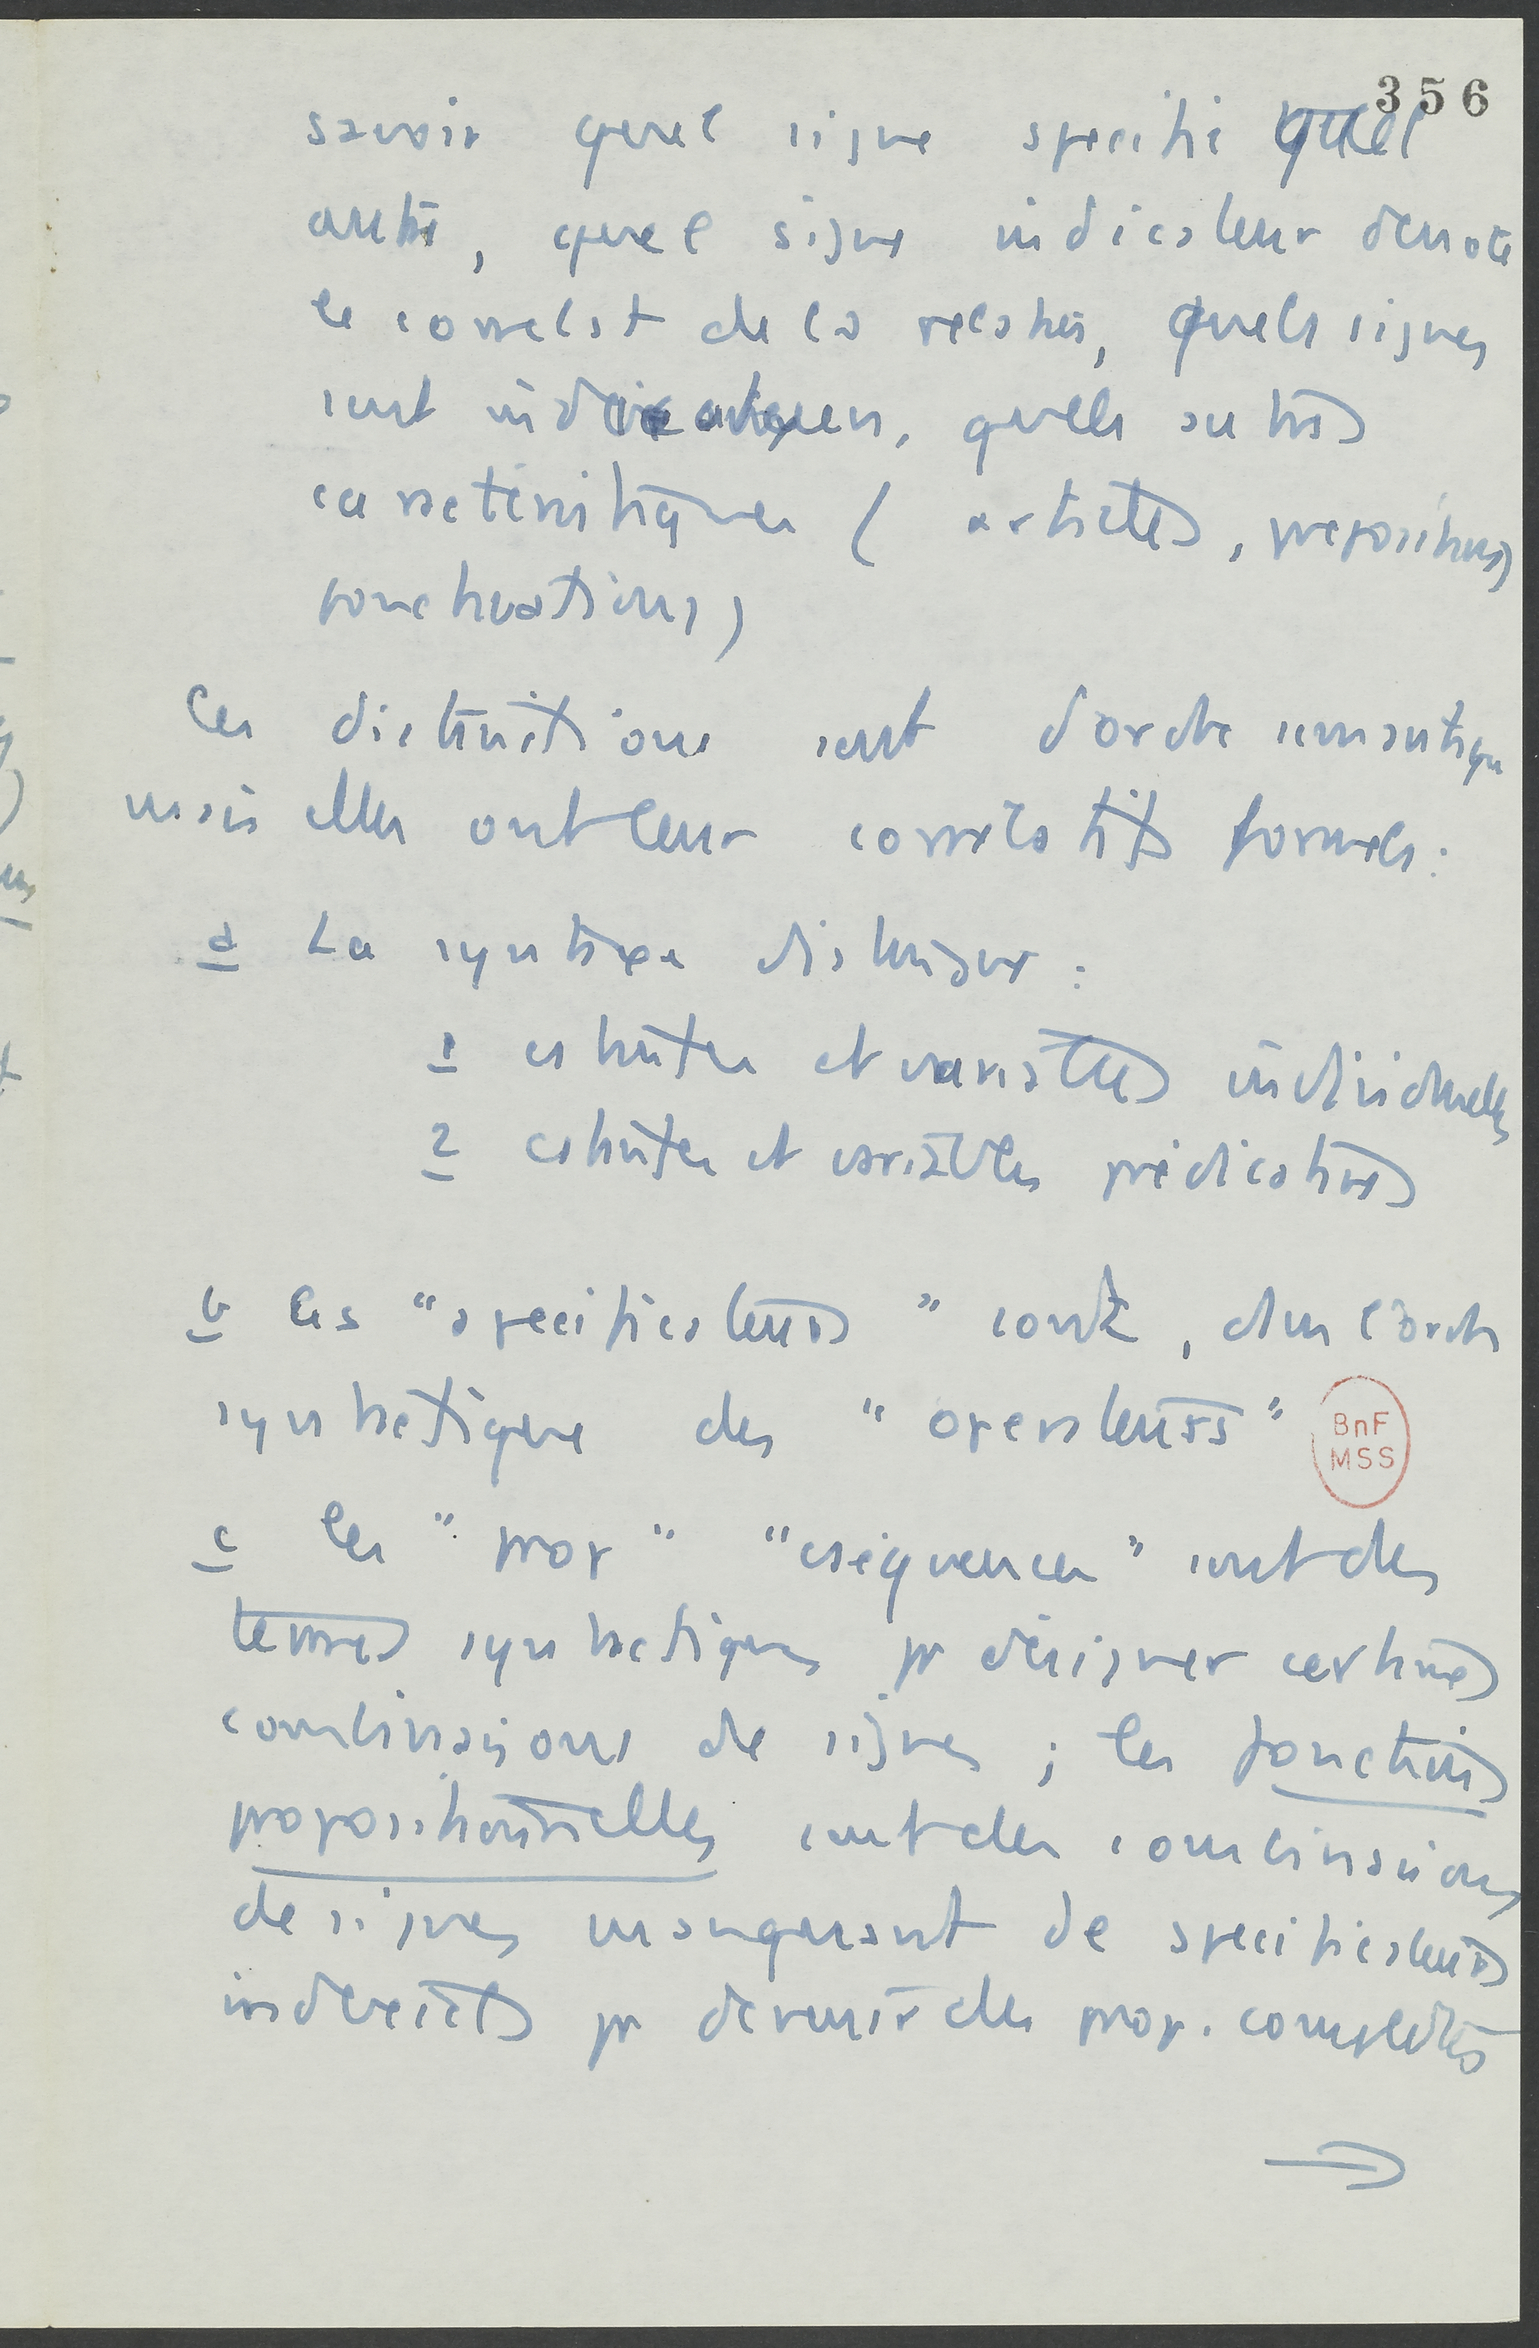 356
savoir quel signe specifie quel
autre, quel signe indicateur denote
le correlat de la relation, quels signes
sont indicateurs, quels autres
caracteristiques (articles, prepositions,
ponctuations)
Ces distinctions sont d'ordre semantique
mais elles ont leur correlatifs formels :
a La syntaxe distingue :
1 cstantes et variables individuelles
2 cstantes et variables prédicatives
b les "specificateurs" sont, dans l'ordre
syntactique des "operateurs"
BnF
MSS
c les "prop" "cséquences" sont des
termes syntactiques pr désigner certaines
combinaisons de signes ; les fonctions
propositionnelles sont des combinaisons
de signes manquant de specificateurs
indirects pr devenir des prop. completes
→